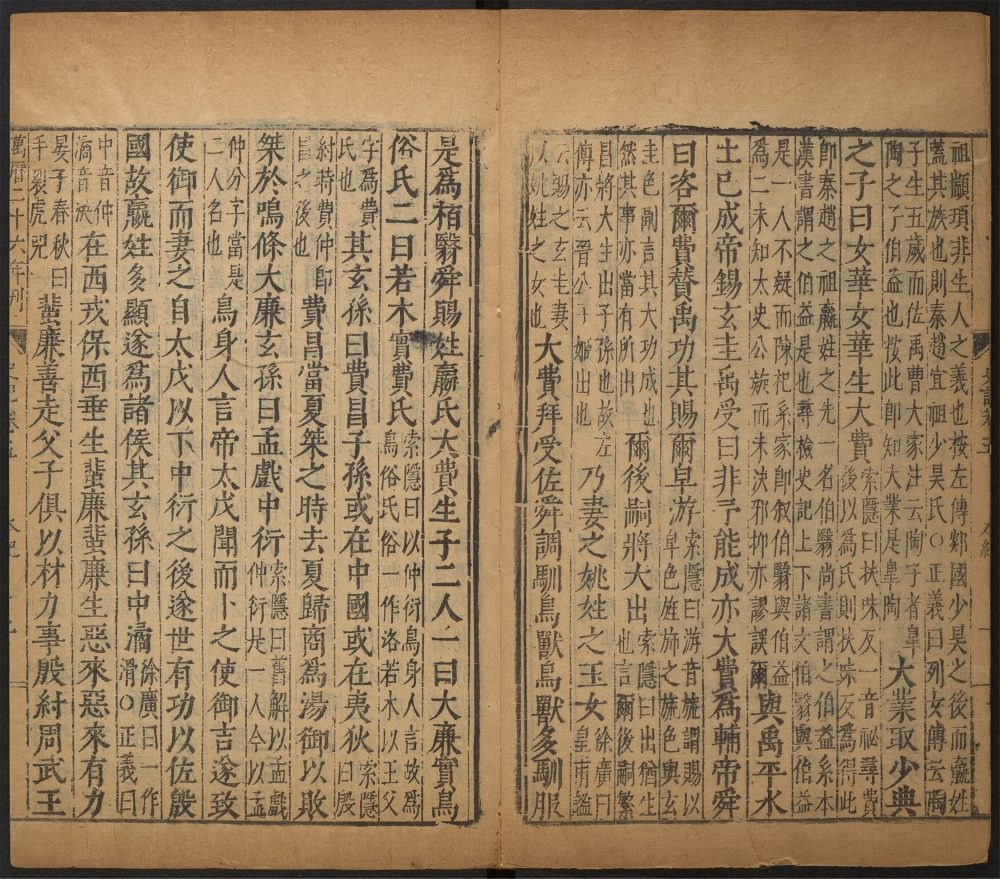 祖顓頊非生人之義也按左傳郯國少昊之後而嬴姓
蓋其族也則秦趙宜祖少昊氏○正義曰列女傳云陶
子生五歲而佐禹曹大家注云陶子者皐
陶之子伯益也按此卽知大業是皐陶
大業取少典
之子曰女華女華生大費
索隱曰扶味反一音祕尋費
後以爲氏則扶味反爲得此
卽秦趙之祖嬴姓之先一名伯翳尚書謂之伯益系本
漢書謂之伯益是也尋檢史記上下諸文伯翳與伯益
是一人不疑而陳杞系家卽叙伯翳與伯益
爲二未知太史公疑而未決邪抑亦謬誤爾
與禹平水
土已成帝錫玄圭禹受曰非予能成亦大費爲輔帝舜
曰咨爾費贊禹功其賜爾皁游
索隱曰游音旒謂賜以
皁色旌旆之旒色與玄
圭色副言其大功成也
然其事亦當有所出
爾後嗣將大出
索隱曰出猶生
也言爾後嗣繁
昌將大生出子孫也故左
傳亦云晋公子姬出也
乃妻之姚姓之玉女
徐廣曰
皇甫謐
云賜之玄圭妻
以姚姓之女也
大費拜受佐舜調馴鳥獸鳥獸多馴服
是爲栢翳舜賜姓嬴氏大費生子二人一曰大廉實鳥
俗氏二曰若木實費氏
索隱曰以仲衍鳥身人言故爲
鳥俗氏俗一作洛若木以王父
字爲費
氏也
其玄孫曰費昌子孫或在中國或在夷狄
索隱
曰殷
紂時費仲卽
昌之後也
費昌當夏桀之時去夏歸商爲湯御以敗
桀於鳴條大廉玄孫曰孟戲中衍
索隱曰舊解以孟戲
仲衍是一人今以孟
仲分字當是
二人名也
鳥身人言帝太戊聞而卜之使御吉遂致
使御而妻之自太戊以下中衍之後遂世有功以佐殷
國故嬴姓多顯遂爲諸侯其玄孫曰中潏
徐廣曰一作
滑○正義曰
中音仲
潏音決
在西戎保西垂生蜚廉蜚廉生惡來惡來有力
晏子春秋曰
手裂虎兕
蜚廉善走父子俱以材力事殷紂周武王
萬曆二十六年刊